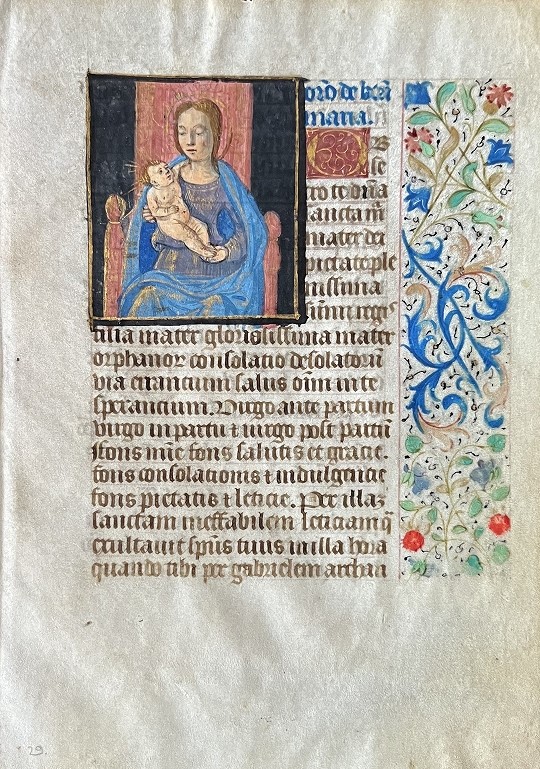 orõ de beatã
maria.
OB
se
cro te dñã
sancta m̃
mater dei
pietate ple
nissima
sũmi regis
filia mater gloriosissima mater
orphanoꝝ consolatio desolatorũ
via errancium salus oĩm in te
sperantium. Virgo ante partum
virgo in partu ⁊ virgo post partũ
ffons mĩe fons salutis et gracie.
fons consolationis ⁊ indulgencie
fons pietatis ⁊ leticie. Per illaz
sanctam ineffabilem leticiam q̃
exultauit sp̃us tuus in illa hora
quando tibi per gabrielem archan
29.